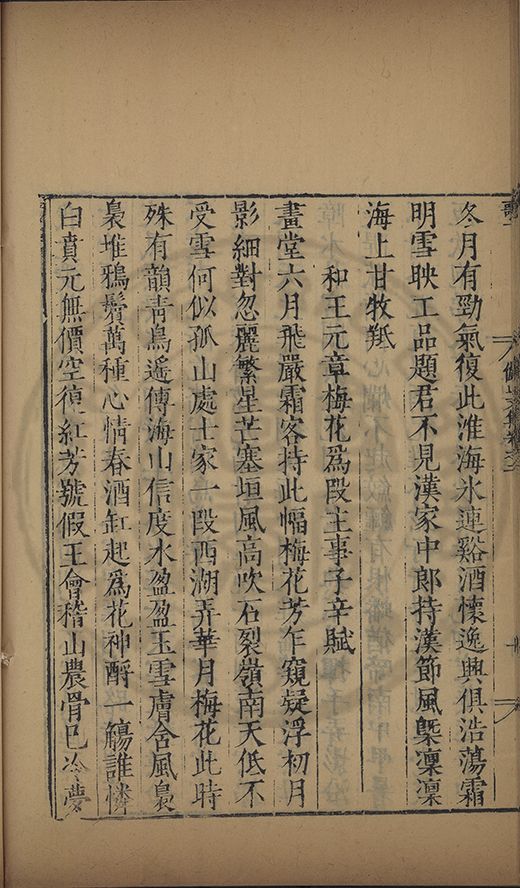 冬月有勁氣復此淮海氷連谿酒懷逸興俱浩蕩霜
明雪映工品題君不見漢家中郎持漢節風槩凜凜
海上甘牧羝
和王元章梅花爲段主事子辛賦
畫堂六月飛嚴霜客持此幅梅花芳乍窺疑浮初月
影細對忽麗繁星芒塞垣風高吹石裂嶺南天低不
受雪何似孤山處士家一段西湖弄華月梅花此時
殊有韻青鳥遙傳海山信度水盈盈玉雪膚含風裊
裊堆鴉鬢萬種心情春酒缸起爲花神酹一觴誰憐
白賁元無價空 紅芳號假王會稽山農骨已冷夢